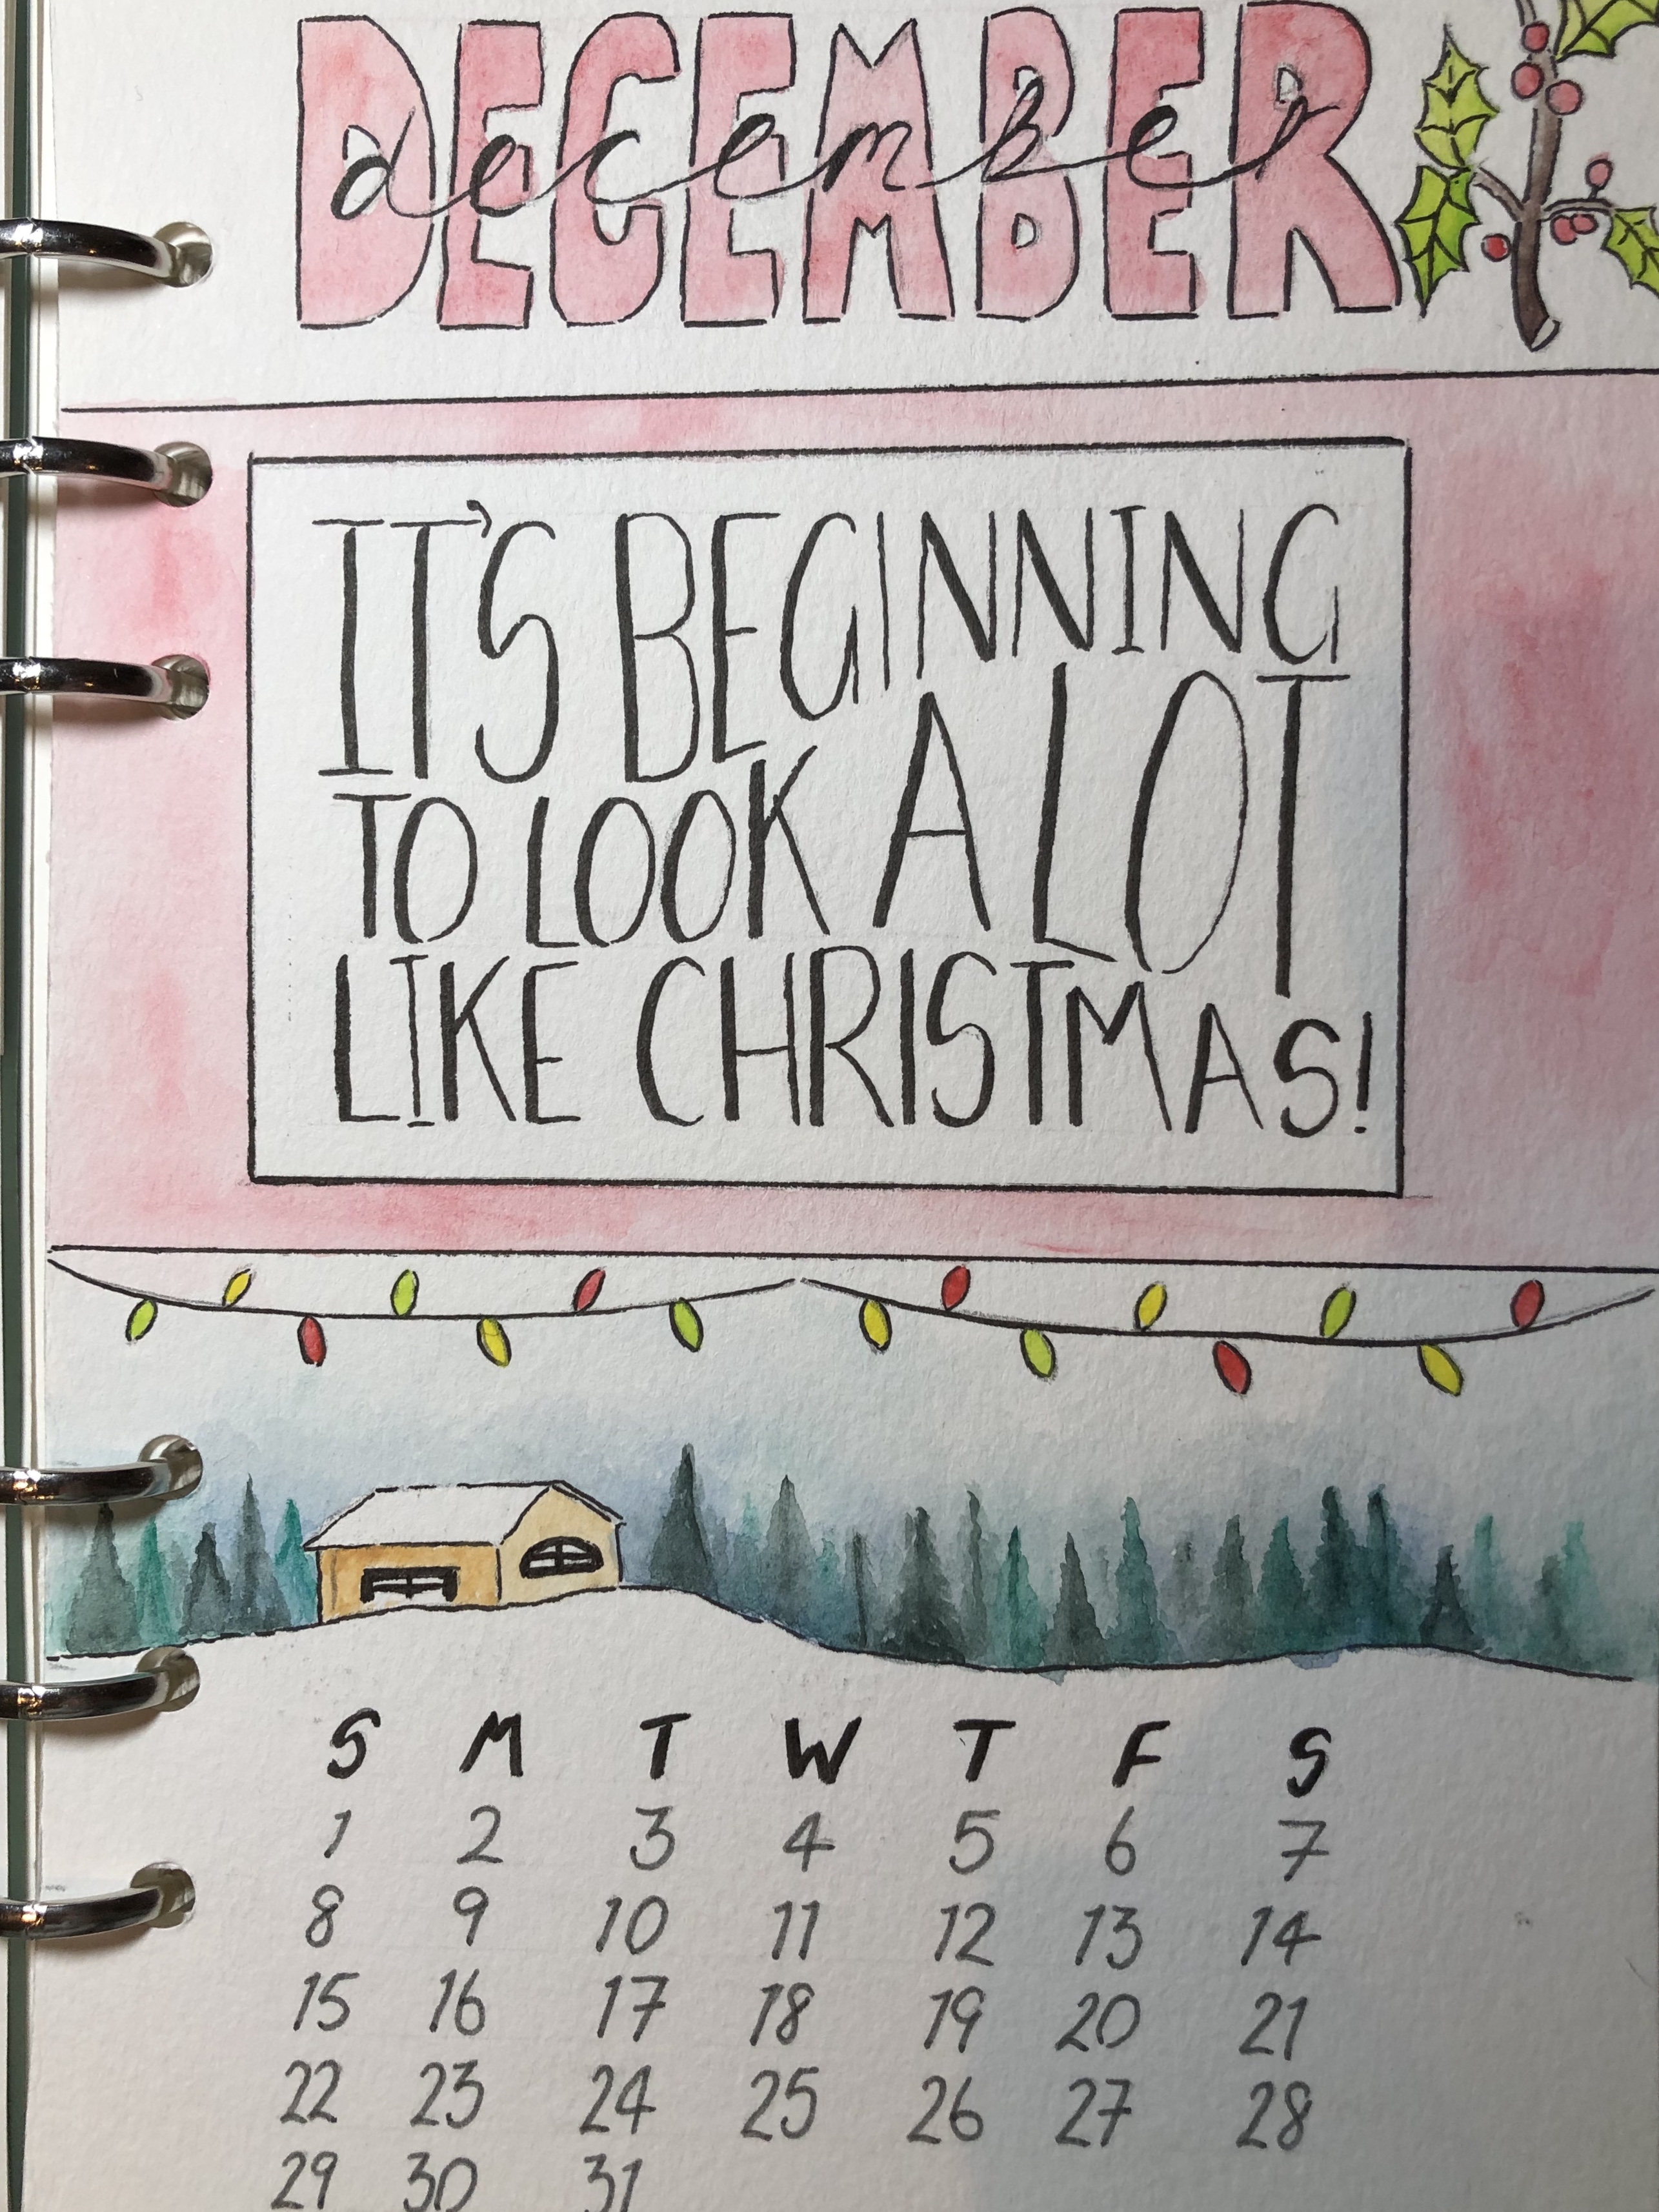 DECEMBER
december
IT'S BEGINNING
TO LOOK A LOT
LIKE CHRISTMAS!
S M T W T F S
1 2 3 4 5 6 7
8 9 10 11 12 13 14
15 16 17 18 19 20 21
22 23 24 25 26 27 28
29 30 31